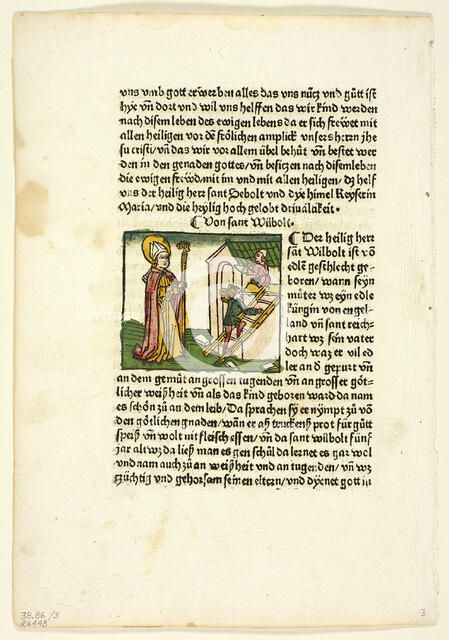 vns vmb gott erwerben alles das vns nücz vnd gůtt ist
hye vn̄ dort vnd wil vns helffen das wir kind werden
nach disem leben des ewigen lebens da er sich frewet mit
allen heiligen vor dē frölichen amplick vnsers herrn jhe
su cristi/vn̄ das wir vor allem übel behůt vn̄ bestet wer
den in den genaden gottes/vn̄ besiczen nach disem leben
die ewigen frewd/mit im vnd mit allen heiligen/dz helf
vns der heilig herr sant Sebolt vnd dye himel Keyserin
Maria/vnd die heylig hoch gelobt driualtikeit.
¶ Von sant Wilbolt.
¶ Der heilig herr
sāt Wilbolt ist vō
edlē geschlecht ge-
boren/wann seyn
můter wz eyn edle
küngin von engel-
land vn̄ sant reich-
hart wz sein vater
doch waz er vil ed
ler an dem gemůt an grossen tugenden vn̄ an grosser göt-
licher weißheit vn̄ als das kind geboren ward da nam
es schön zů an dem leib/Da sprachen sy er nympt zů vō
den götlichen gnaden/wan er aß truckenß prot für gůtt
speiß vn̄ wolt nit fleisch essen/vn̄ da sant wilbolt fünf
jar alt wz da ließ man es gen schůl da lernet es gar wol
vnd nam auch zů an weißheit vnd an tugenden/vn̄ wz
züchtig vnd gehorsam seinen eltern/vnd dyenet gott in
38.86/3
R6448
3